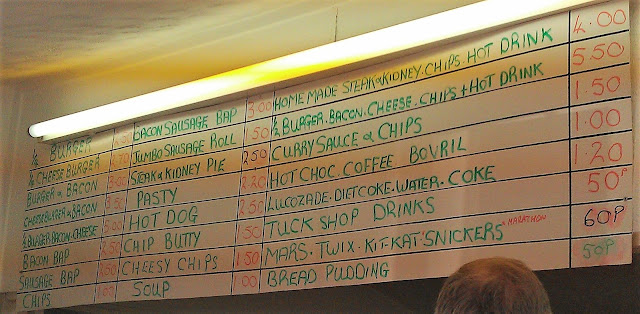 BURGER BACON SAUSAGE BAP 3.00 HOME MADE STEAK & KIDNEY. CHIPS. HOT DRINK 4.00
CHEESEBURGER JUMBO SAUSAGE ROLL 50 ½ BURGER. BACON. CHEESE. CHIPS + HOT DRINK 5.50
BURGER & BACON STEAK & KIDNEY PIE 2.50 CURRY SAUCE & CHIPS 1.50
CHEESEBURGER & BACON PASTY 2.20 HOT CHOC. COFFEE BOVRIL 1.00
½ BURGER. BACON. CHEESE HOT DOG 2.50 LUCOZADE. DIET COKE. WATER. COKE 1.20
BACON BAP CHIP BUTTY 1.50 TUCK SHOP DRINKS 50P
SAUSAGE BAP CHEESY CHIPS 1.50 MARS. TWIX. KIT-KAT "SNICKERS" MARATHON 60P
CHIPS SOUP 00 BREAD PUDDING 50P